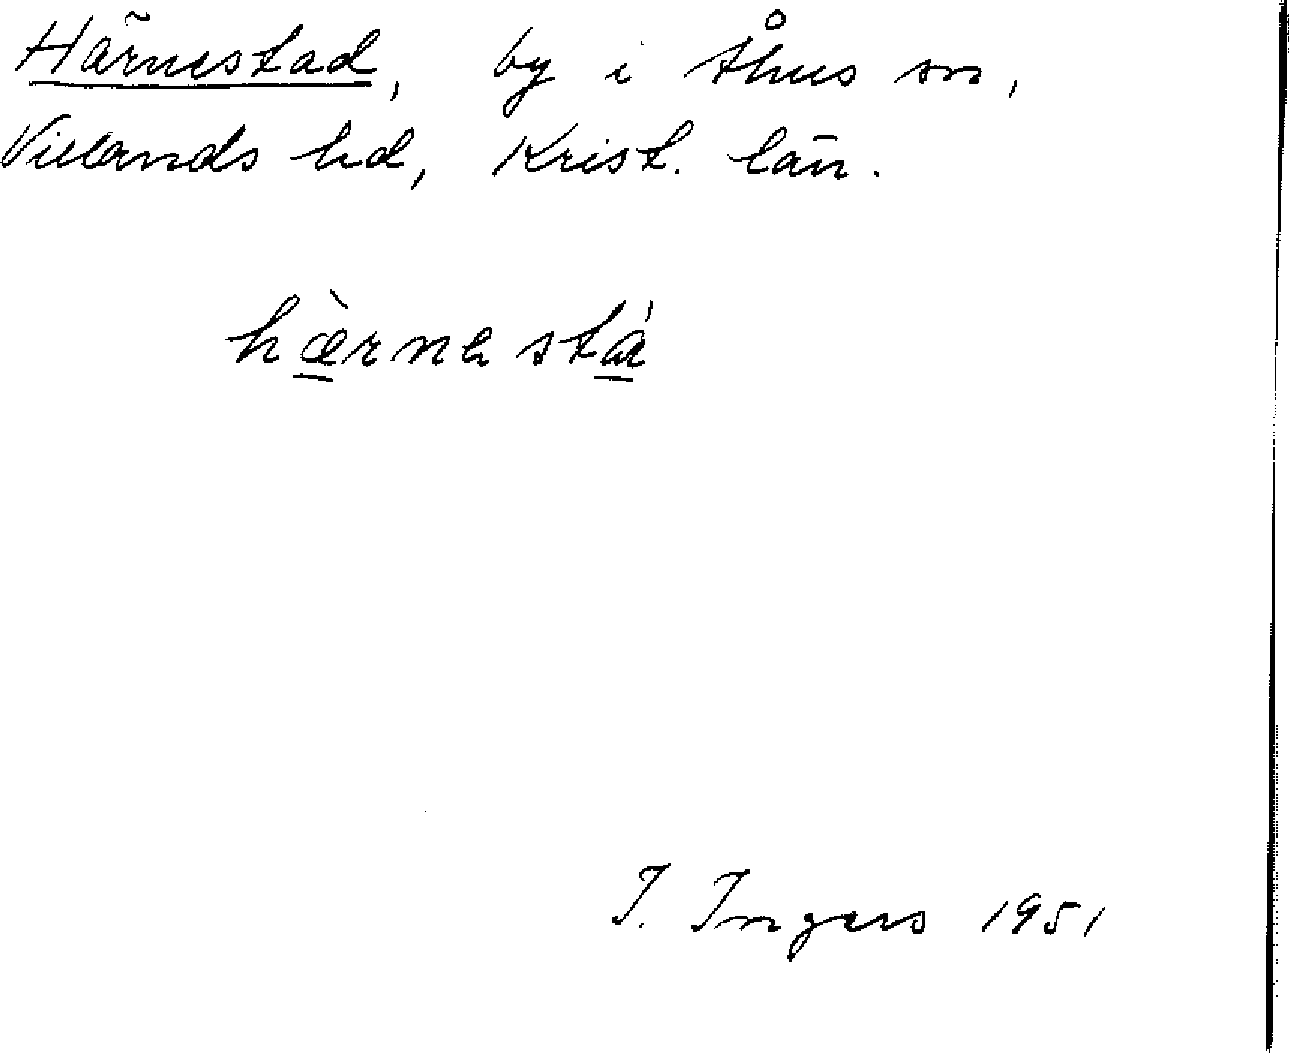 Härnestad, by i Åhus sn,
Villands hd, Krist. län.
hæ̀rnastá
I. Ingers 1951